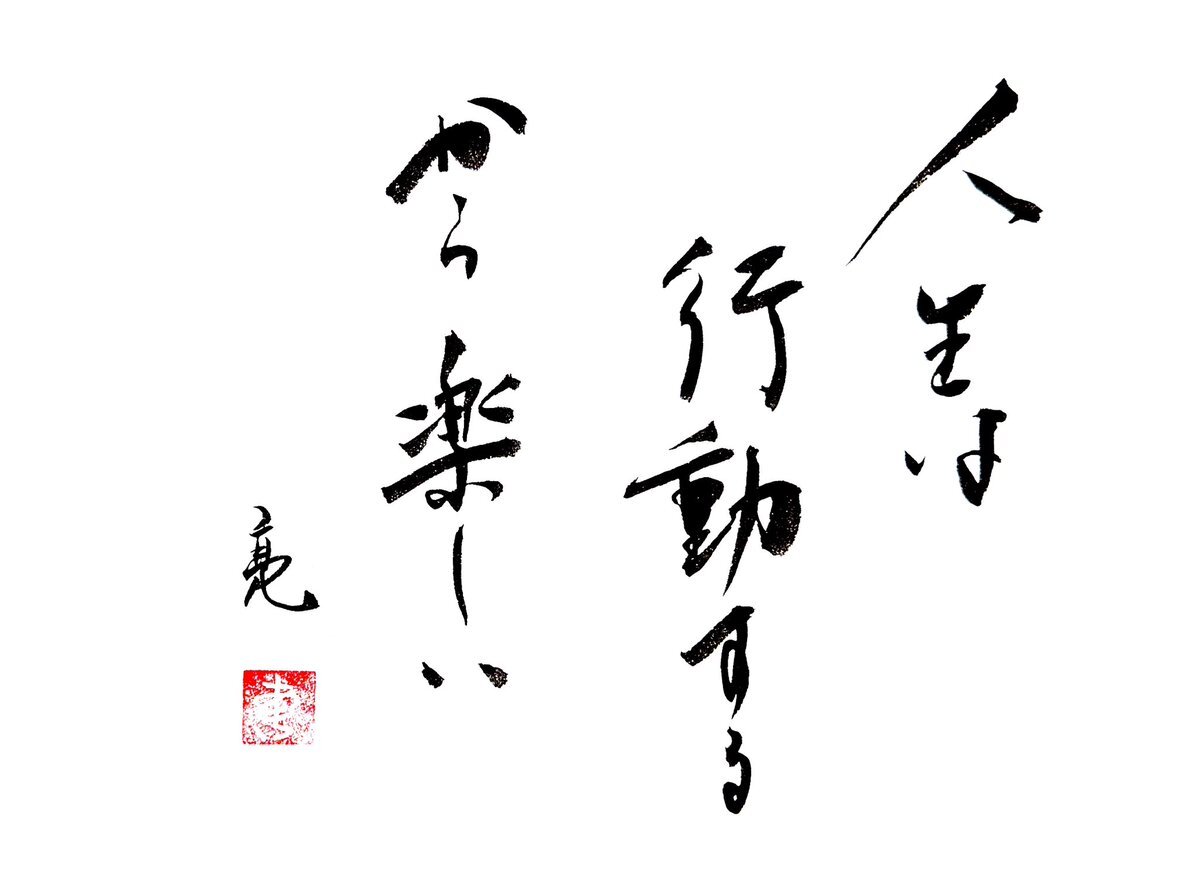 人生は
行動する
から楽しい
亮